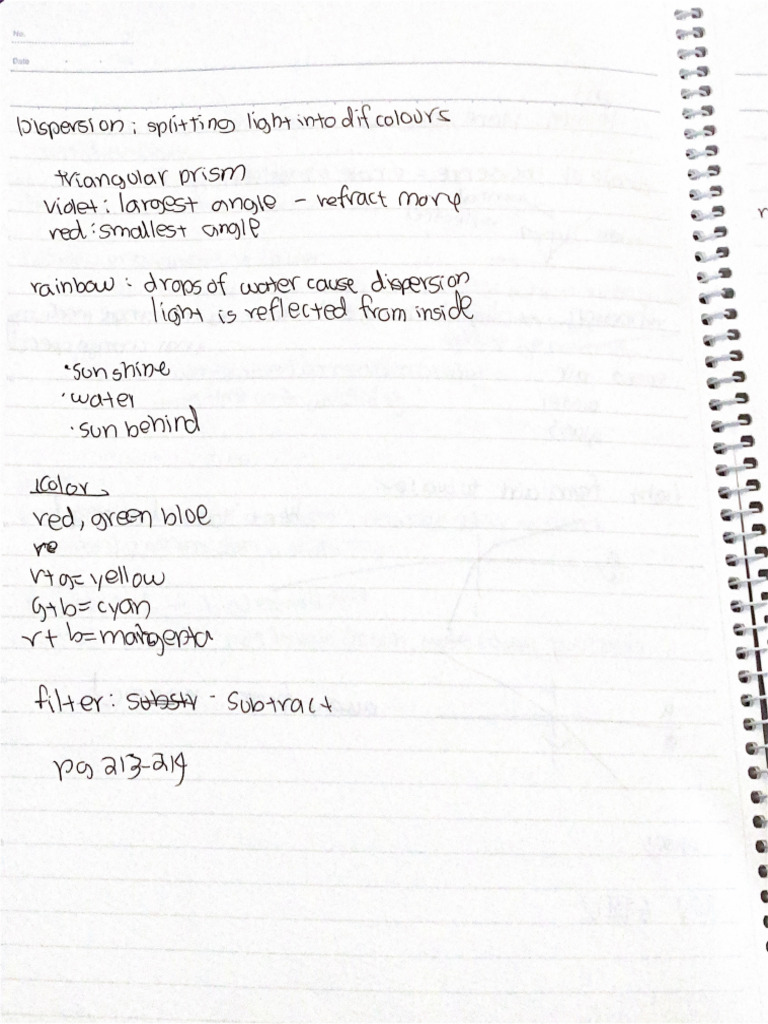 No.
Date
Dispersion: splitting light into dif colours
triangular prism
violet: largest angle - refract more
red: smallest angle
rainbow: drops of water cause dispersion
light is reflected from inside
• sunshine
• water
• sun behind
color
red, green blue
re
r+g= yellow
g+b= cyan
r+ b=
filter: - subtract
pg 213-214